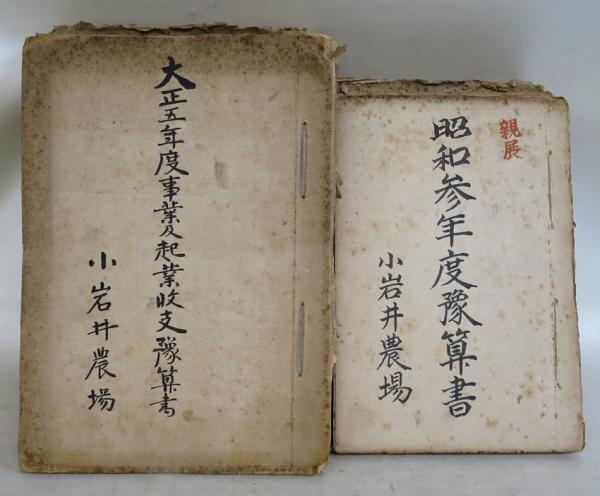 大正五年度事業及起業收支豫算書
小岩井農場
親展
昭和参年度豫算書
小岩井農場